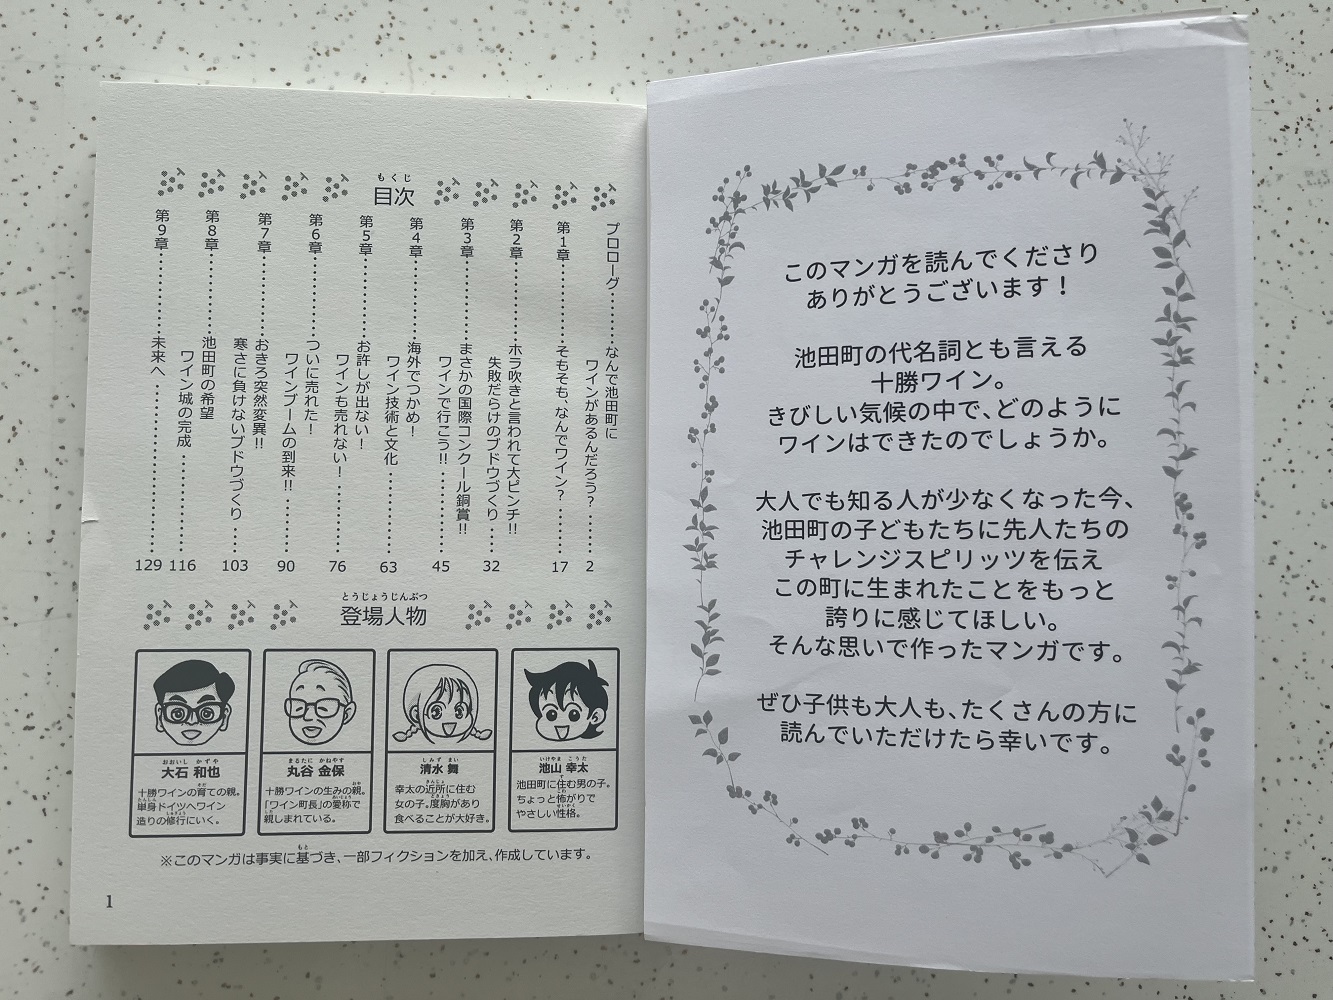 このマンガを読んでくださり
ありがとうございます！
池田町の代名詞とも言える
十勝ワイン。
きびしい気候の中で、どのように
ワインはできたのでしょうか。
大人でも知る人が少なくなった今、
池田町の子どもたちに先人たちの
チャレンジスピリッツを伝え
この町に生まれたことをもっと
誇りに感じてほしい。
そんな思いで作ったマンガです。
ぜひ子供も大人も、たくさんの方に
読んでいただけたら幸いです。
もくじ
目次
プロローグ………なんで池田町に
ワインがあるんだろう？……2
第1章…………そもそも、なんでワイン？……17
第2章…………ホラ吹きと言われて大ピンチ!!
失敗だらけのブドウづくり……32
第3章…………まさかの国際コンクール銅賞!!
ワインで行こう!!…………45
第4章…………海外でつかめ！
ワイン技術と文化…………63
第5章…………お許しが出ない！
ワインも売れない！…………76
第6章…………ついに売れた！
ワインブームの到来!!…………90
第7章…………おきろ突然変異!!
寒さに負けないブドウづくり……103
第8章…………池田町の希望
ワイン城の完成…………116
第9章…………未来へ…………………129
とうじょうじんぶつ
登場人物
おおいし かずや
大石 和也
そだ
十勝ワインの育ての親。
たんしん
単身ドイツへワイン
しゅぎょう
造りの修行にいく。
まるたに かねやす
丸谷 金保
おや
十勝ワインの生みの親。
あいしょう
「ワイン町長」の愛称で
した
親しまれている。
しみず まい
清水 舞
きんじょ
幸太の近所に住む
どきょう
女の子。度胸があり
食べることが大好き。
いけやま こうた
池山 幸太
す
池田町に住む男の子。
こわ
ちょっと怖がりで
せいかく
やさしい性格。
もと
※このマンガは事実に基づき、一部フィクションを加え、作成しています。
1